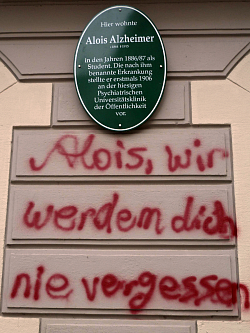 Hier wohnte
Alois Alzheimer
1864-1915
in den Jahren 1886/87 als
Student. Die nach ihm
benannte Erkrankung
stellte er erstmals 1906
an der hiesigen
Psychiatrischen
Universitätsklinik
der Öffentlichkeit
vor.
Alois, wir
werdem dich
nie vergessen